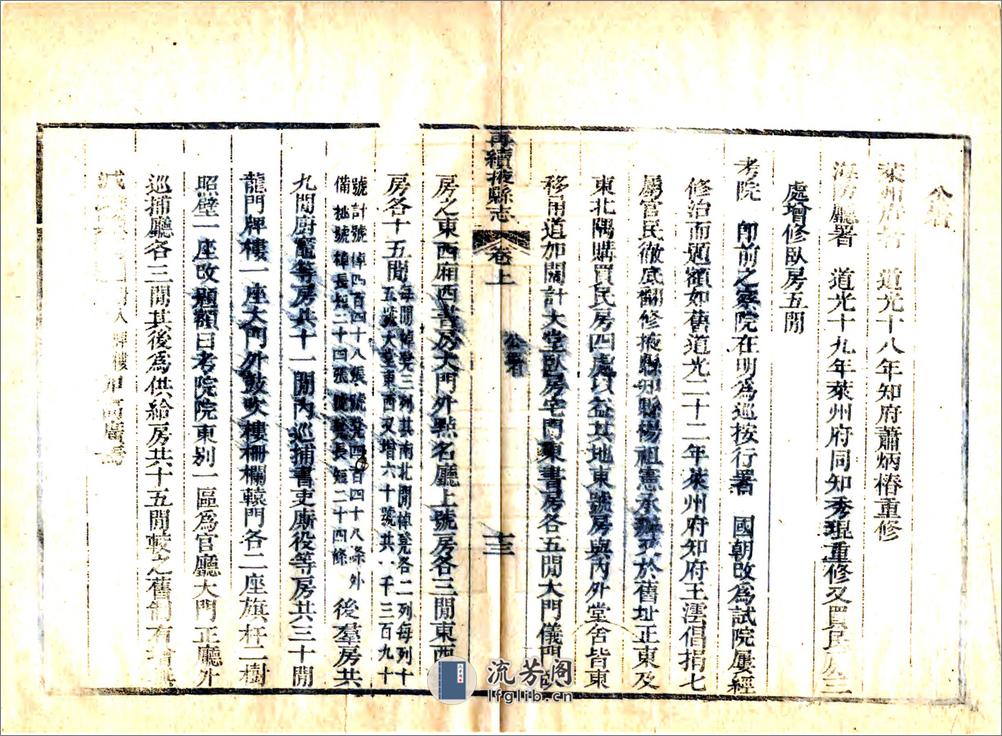 公署
萊州府署 道光十八年知府蕭炳椿重修
海防廳署 道光十九年萊州府同知秀琨重修又買民房三
處增修臥房五間
考院 卽前之察院在明爲巡按行署 國朝改爲試院屢經
修治而題額如舊道光二十二年萊州府知府王澐倡捐七
屬官民徹底翻修掖縣知縣楊祖憲承辦於舊址正東及
東北隅購買民房四處以益其地東號房與內外堂舍皆東
移甬道加闊計大堂臥房宅門東書房各五間大門儀門
再續掖縣志 卷上 公署 十三
房之東西廂西書房大門外點名廳上號房各三間東西
房各十五間 每間棹凳三列其南北間棹凳各二列每列十
五號大堂東西又增六十號共一千三百九十
號計號棹四百四十八張號凳四百四十八條外
備批號棹長短二十四張號凳長短二十四條 後羣房共
九間廚竈等房共十一間內巡捕書吏廝役等房共三十間
龍門牌樓一座大門外鼓吹樓柵欄轅門各二座旗杆二樹
照壁一座改題額曰考院院東別一區爲官廳大門正廳外
巡捕廳各三間其後爲供給房共十五間較之舊制有
流芳阁
lfglib.cn